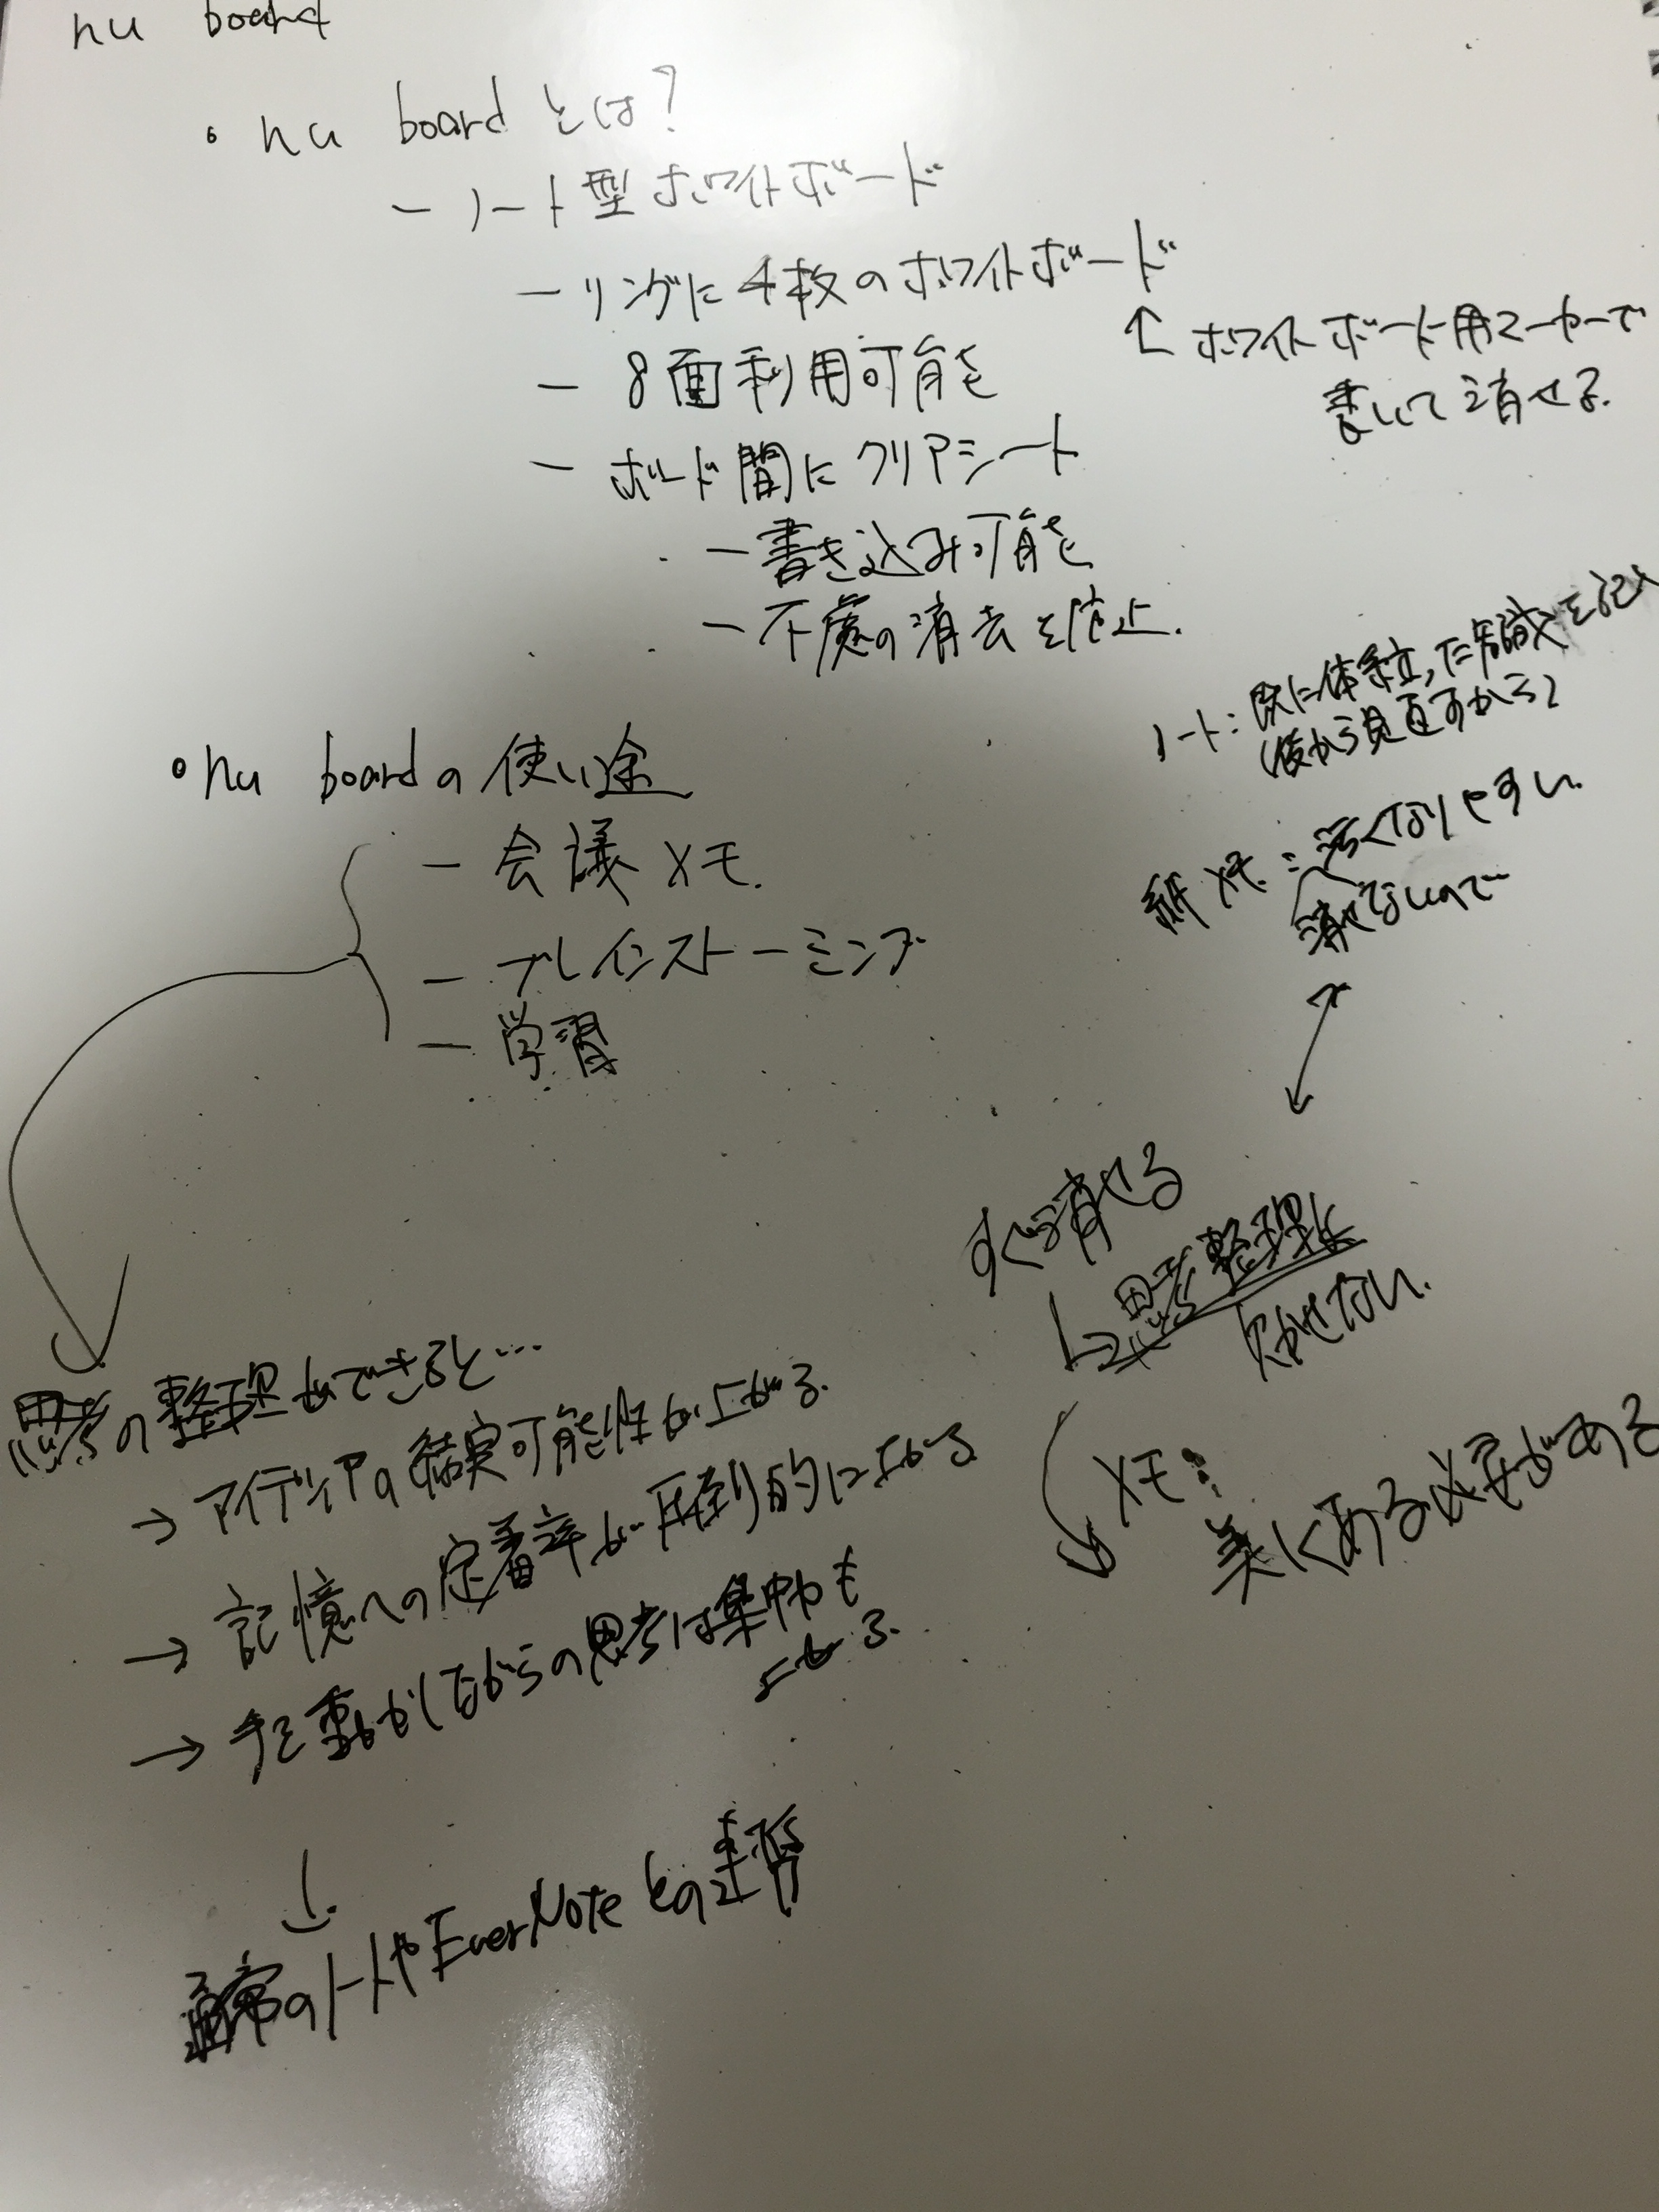 nu board
• nu board とは?
－ノート型ホワイトボード
－リングに4枚のホワイトボード
↑ホワイトボード用マーカーで
書いて消せる.
－8面利用可能
－ボード間にクリアシート
－書き込み可能
－不慮の消去を防止.
ノート:既に体系立った知識を記入
(後から見直すから)
紙メモ:汚くなりやすい.
消せないので
• nu boardの使い途
－会議メモ.
－ブレインストーミング
－学習
すぐ消せる
思考整理に
欠かせない.
メモ:
美しくある必要がある
思考の整理ができると…
→アイディアの結実可能性が上がる.
→記憶への定着率が圧倒的に上がる
→手を動かしながらの思考は集中力も
上がる.
↓
通常のノートやEverNoteとの連携